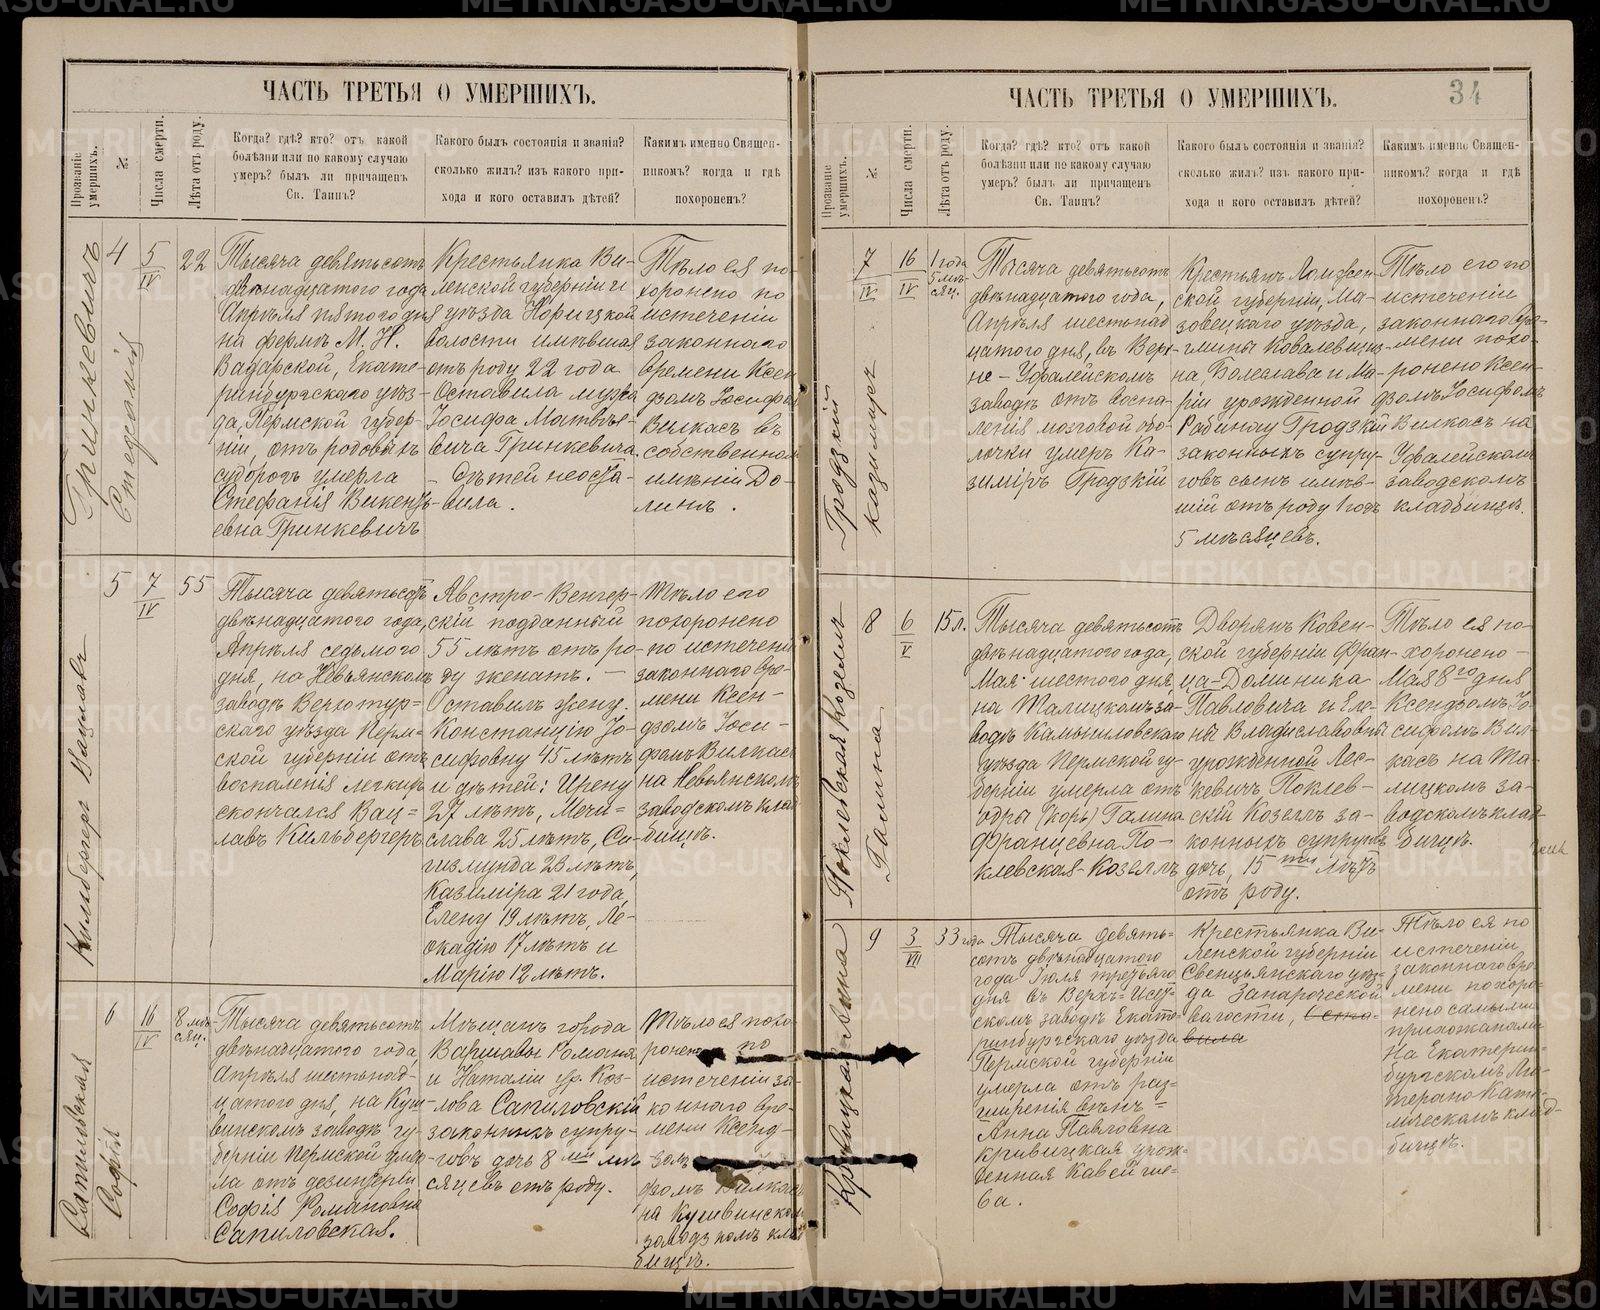 ЧАСТЬ ТРЕТЬЯ О УМЕРШИХЪ.
Прозваніе умершихъ.
№.
Числа смерти.
Лѣта отъ роду.
Когда? гдѣ? кто? отъ какой
болѣзни или по какому случаю
умеръ? былъ ли причащенъ
Св. Таинъ?
Какого былъ состоянія и званія?
сколько жилъ? изъ какого при-
хода и кого оставилъ дѣтей?
Какимъ именно Священ-
никомъ? когда и гдѣ
похороненъ?
Гринкевичъ
Стефанія
4
5
IV
22
Тысяча девятьсотъ
двѣнадцатого года
Апрѣля пятого дня
на фермѣ М. Н.
Екате-
ринбургскаго уѣз-
да, Пермской губер-
ніи, отъ родовыхъ
судорогъ умерла
Стефанія Викентъ-
евна Гринкевичъ
Крестьянка Ви-
ленской губерніи и
уѣзда
волости имѣвшая
отъ роду 22 года
Оставила мужа
Іосифа Матвѣе-
вича Гринкевича.
Дѣтей не оста-
вила.
Тѣло ея по-
хоронено по
истеченіи
законнаго
времени Ксен
дзомъ Іосифом
Вилкасъ въ
собственном
имѣніи До-
линѣ.
Кильбергеръ Вацлавъ
5
7
IV
55
Тысяча девятьсотъ
двѣнадцатого года,
Апрѣля седьмого
дня, на Невьянскомъ
заводѣ Верхотур-
скаго уѣзда Перм-
ской губерніи отъ
воспаленія легкихъ
скончался Вац-
лавъ Кильбергеръ
Австро-Венгер-
скій подданный
55 лѣтъ отъ ро-
ду женатъ. —
Оставилъ жену
Констанцію Іо-
сифовну 45 лѣтъ
и дѣтей: Ирену
27 лѣтъ, Мечи-
слава 25 лѣтъ, Си-
гизмунда 23 лѣтъ,
Казиміра 21 года,
Елену 19 лѣтъ, Ле-
окадію 17 лѣтъ и
Марію 12 лѣтъ.
Тѣло его
похоронено
по истечені
законнаго вре-
мени Ксен-
дзомъ Іоси-
фомъ Вилкасъ
на Невьянскомъ
заводскомъ кла
бищѣ.
Сапиловская
Софія
6
16
IV
8 мѣ-
сяц.
Тысяча девятьсотъ
двѣнадцатого года
Апрѣля шестьнад-
цатого дня, на Куш-
винскомъ заводѣ гу-
берніи Пермской умер
ла отъ дезинтеріи
Софія Романовна
Сапиловская.
Мѣщанъ города
Варшавы Романа
и Наталіи ур. Коз-
лова Сапиловскій
законныхъ супру-
говъ дочь 8ми мѣ
сяцевъ отъ роду.
Тѣло ея похо
ронено по
истеченіи за-
коннаго вре-
мени Ксенд-
зомъ
фомъ Вилкасъ
на Кушвинском
заводскомъ кла
бищѣ.
34
ЧАСТЬ ТРЕТЬЯ О УМЕРШИХЪ.
Прозваніе умершихъ.
№.
Числа смерти.
Лѣта отъ роду.
Когда? гдѣ? кто? отъ какой
болѣзни или по какому случаю
умеръ? былъ ли причащенъ
Св. Таинъ?
Какого былъ состоянія и званія?
сколько жилъ? изъ какого при-
хода и кого оставилъ дѣтей?
Какимъ именно Священ-
никомъ? когда и гдѣ
похороненъ?
Гродзкій
Казимиръ
7
IV
16
IV
1 года
5 мѣ-
сяц.
Тысяча девятьсотъ
двѣнадцатого года,
Апрѣля шестьнад
цатого дня, въ Верх-
не-Уфалейскомъ
заводѣ отъ воспа-
ленія мозговой обо-
лочки умеръ Ка-
зиміръ Гродзкій
Крестьянъ Ломжен-
ской губерніи, Ма-
зовецкаго уѣзда,
гмины Ковалевщиз-
на, Болеслава и Ма-
ріи урожденной
Рабинау Гродзкій
законныхъ супру-
говъ сынъ имѣв-
шій отъ роду 1 годъ
5 мѣсяцевъ.
Тѣло его по
истеченіи
законнаго вре-
мени похо-
ронено Ксен-
дзомъ Іосифомъ
Вилкасъ на
Уфалейскомъ
заводскомъ
кладбищѣ.
Поклевская Козеллъ
Галина
8
6
V
15 л.
Тысяча девятьсотъ
двѣнадцатого года,
Мая шестого дня,
на Талицкомъ за-
водѣ Камышловскаго
уѣзда Пермской гу-
берніи умерла отъ
одры (корь) Галина
Францевна По-
клевская-Козеллъ
Дворянъ Ковен-
ской губерніи Фран-
ца-Доминика
Павловича и Еле-
ны Владиславовны
урожденной Лес-
кевичъ Поклев-
скій Козеллъ за-
конныхъ супруговъ
дочь, 15ти лѣтъ
отъ роду.
Тѣло ея по-
хоронено —
Мая 8го дня
Ксендзомъ Іо-
сифомъ Вил-
касъ на Та-
лицкомъ за-
водскомъ клад-
бищѣ.
Кривицкая Анна
9
3
VII
33 года
Тысяча девять-
сотъ двѣнадцатого
года Іюля третьяго
дня въ Верхъ-Исет-
скомъ заводѣ Екате-
ринбургскаго уѣзда
Пермской губерніи
умерла отъ раз-
ширенія
Анна Павловна
Кривицкая урож-
денная
Крестьянка Ви-
ленской губерніи
Свенцянскаго уѣз-
да
волости, Оста-
вила
Тѣло ея по
истеченіи
законнаго вре
мени похоро-
нено самыми
прихожанами
на Екатерин-
бургскомъ Лю-
терано Като-
лическомъ клад-
бищѣ.
METRIKI.GASO-URAL.RU